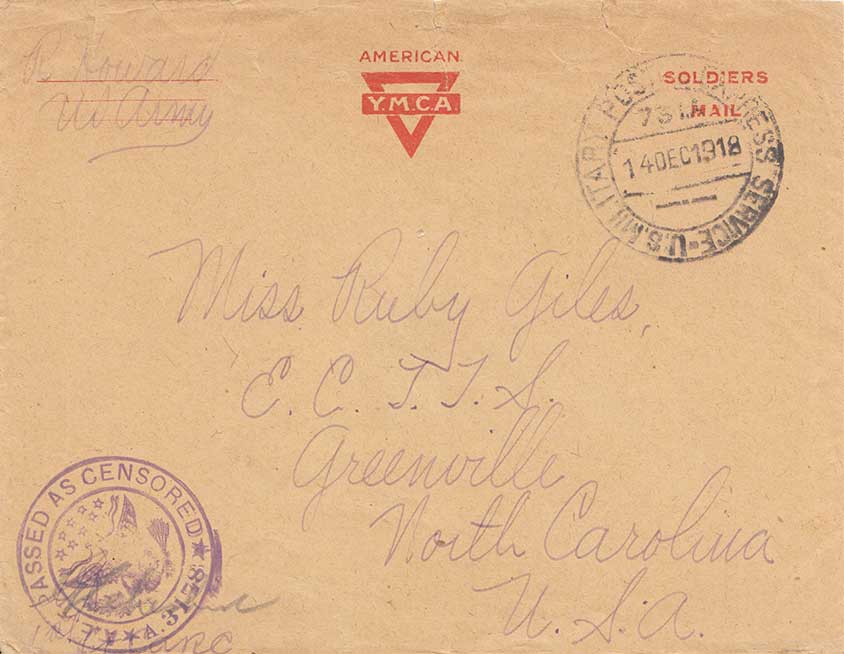 P. Howard
US Army
AMERICAN
Y.M.C.A
SOLDIERS
MAIL
MILITARY POSTAL EXPRESS SERVICE - U.S.
731
14 DEC 1918
Miss Ruby Giles,
E. C. T. T. S.
Greenville
North Carolina
U. S. A.
PASSED AS CENSORED ★ A.3158 ★ A.E.F. ★